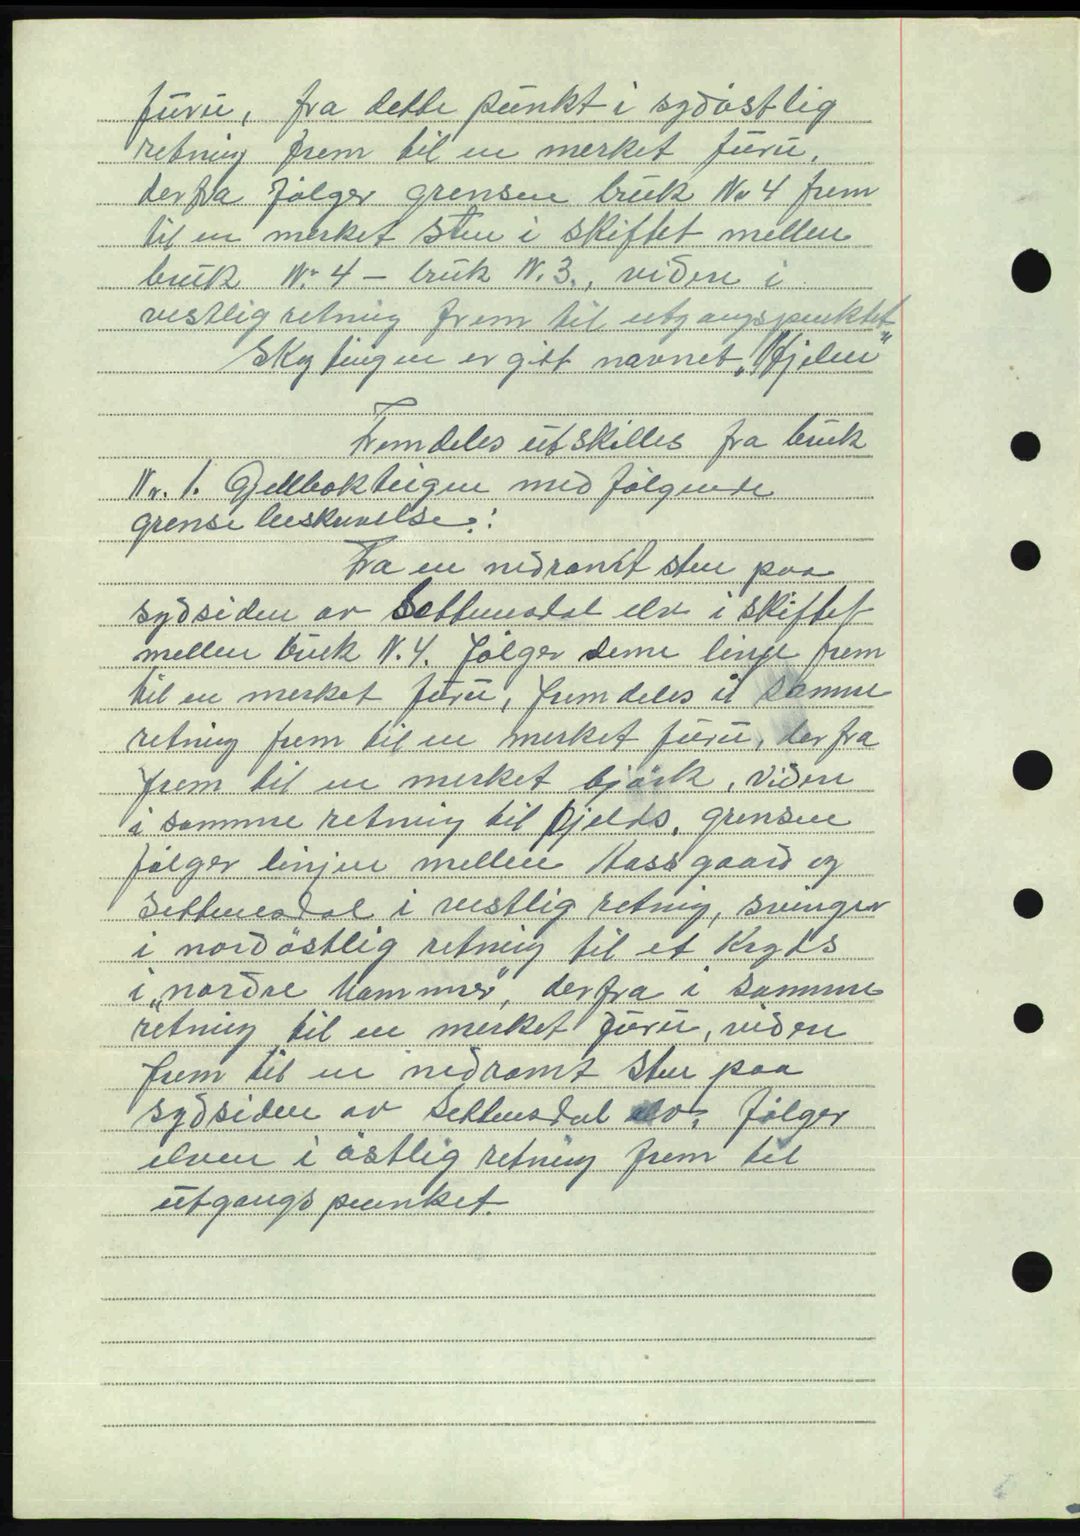 furu, fra dette punkt i sydöstlig
retning frem til en merket furu,
derfra fölger grensen bruk Nr 4 frem
til en merket sten i skiftet mellem
bruk Nr. 4 – bruk N. 3., videre i
vestlig retning frem til utgangspunktet
Skyteigen er gitt navnet „Hjelen"
Fremdeles utskilles fra bruk
Nr. 1. Gjellbokteigen med fölgende
grensebeskrivelse.:
Fra en nedramt sten paa
sydsiden av Settemsdal elv i skiftet
mellem bruk N. 4. fölger denne linje frem
til en merket furu, fremdeles i samme
retning frem til en merket furu, derfra
frem til en merket björk, videre
i samme retning til fjelds, grensen
fölger linjen mellem Aassgaard og
Settemsdal i vestlig retning, svinger
i nordöstlig retning til et kryds
i „nordre hammer", derfra i samme
retning til en merket furu, videre
frem til en nedramt sten paa
sydsiden av Settemsdal elv, fölger
elven i östlig retning frem til
utgangspunket.